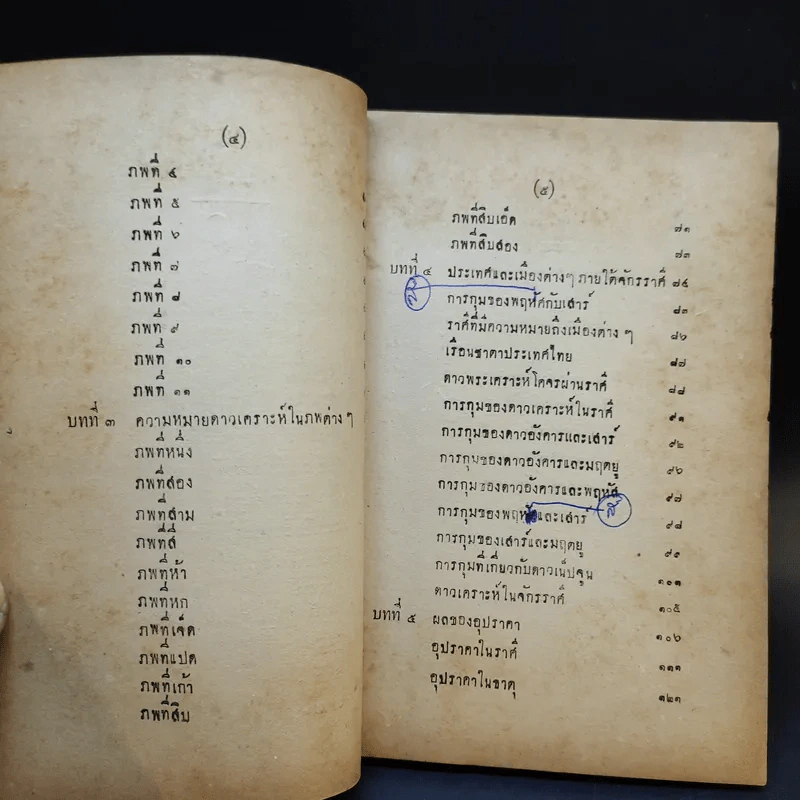 (๔)
ภพที่ ๔
ภพที่ ๕
ภพที่ ๖
ภพที่ ๗
ภพที่ ๘
ภพที่ ๙
ภพที่ ๑๐
ภพที่ ๑๑
บทที่ ๓ ความหมายดาวเคราะห์ในภพต่าง ๆ
ภพที่หนึ่ง
ภพที่สอง
ภพที่สาม
ภพที่สี่
ภพที่ห้า
ภพที่หก
ภพที่เจ็ด
ภพที่แปด
ภพที่เก้า
ภพที่สิบ
(๕)
ภพที่สิบเอ็ด ๗๑
ภพที่สิบสอง ๗๓
บทที่ ๔ ประเทศและเมืองต่างๆ ภายใต้จักรราศี ๗๕
การกุมของพฤหัศกับเสาร์ ๘๓
ราศีที่มีความหมายถึงเมืองต่าง ๆ ๘๖
เรือนชาตาประเทศไทย ๘๗
ดาวพระเคราะห์โคจรผ่านราศี ๘๘
การกุมของดาวเคราะห์ในราศี ๙๑
การกุมของดาวอังคารและเสาร์ ๙๒
การกุมของดาวอังคารและมฤตยู ๙๖
การกุมของดาวอังคารและพฤหัส ๙๗
การกุมของพฤหัสและเสาร์ ๙๘
การกุมของเสาร์และมฤตยู ๙๙
การกุมที่เกี่ยวกับดาวเน็ปจูน ๑๐๓
ดาวเคราะห์ในจักรราศี ๑๐๕
บทที่ ๕ ผลของอุปราคา ๑๐๖
อุปราคาในราศี ๑๑๑
อุปราคาในธาตุ ๑๒๑